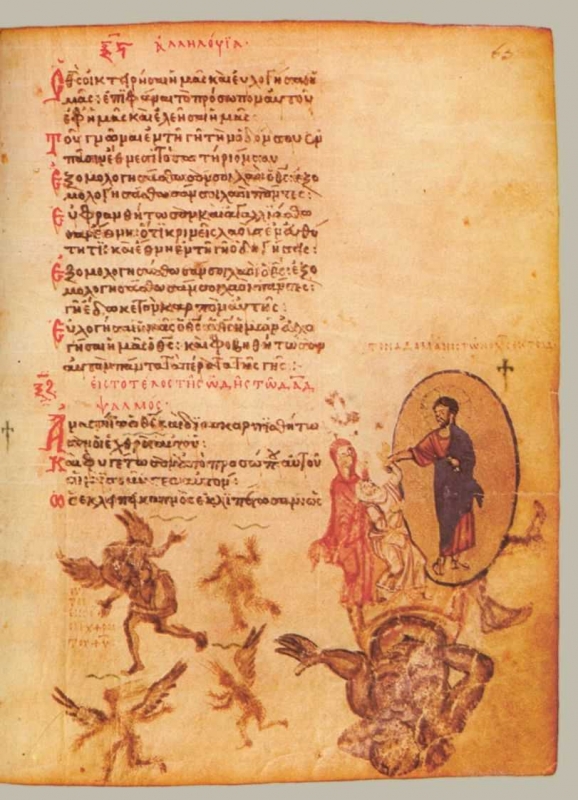 ξϛ ἀλληλούϊα·
Ὁ θς οἰκτειρήσαι ἡμᾶς καὶ εὐλογήσαι ἡ
μᾶς: ἐπιφάναι τὸ πρόσωπον αὐτοῦ
ἐφ ἡμᾶς καὶ ἐλεήσαι ἡμᾶς:
Τοῦ γνῶναι ἐν τῇ γῇ τὴν ὁδόν σου ἐν
πᾶσιν ἔθνεσι τὸ σωτήριόν σου
Ἐξομολογησάσθωσάν σοι λαοὶ ὁ θς: ἐξο
μολογησάσθωσάν σοι λαοὶ πάντες:
Εὐφρανθήτωσαν καὶ ἀγαλλιάσθω
σαν ἔθνη: ὅτι κρινεῖς λαοὺς ἐν εὐθύ
τητι: καὶ ἔθνη ἐν τῇ γῇ ὁδηγήσεις:
Ἐξομολογησάσθωσάν σοι λαοὶ ὁ θς: ἐξο
μολογησάσθωσάν σοι λαοὶ πάντες:
γῆ ἔδωκε τὸν καρπὸν αὐτῆς:
Εὐλογήσαι ἡμᾶς ὁ θς ὁ θς ἡμῶν εὐλο
γήσαι ἡμᾶς ὁ θς: καὶ φοβηθήτωσαν
αὐτὸν πάντα τὰ πέρατα τῆς γῆς:
ξζ εἰς τὸ τέλος τῆς ᾠδῆς τῷ δαδ
ψαλμός·
Ἀναστήτω ὁ θς καὶ διασκορπισθήτω
σαν οἱ ἐχθροὶ αὐτοῦ:
Καὶ φυγέτωσαν ἀπὸ προσώπου αὐτοῦ
οἱ μισοῦντες αὐτόν:
ὡς ἐκλείπει καπνὸς ἐκλιπέτωσαν ὡς